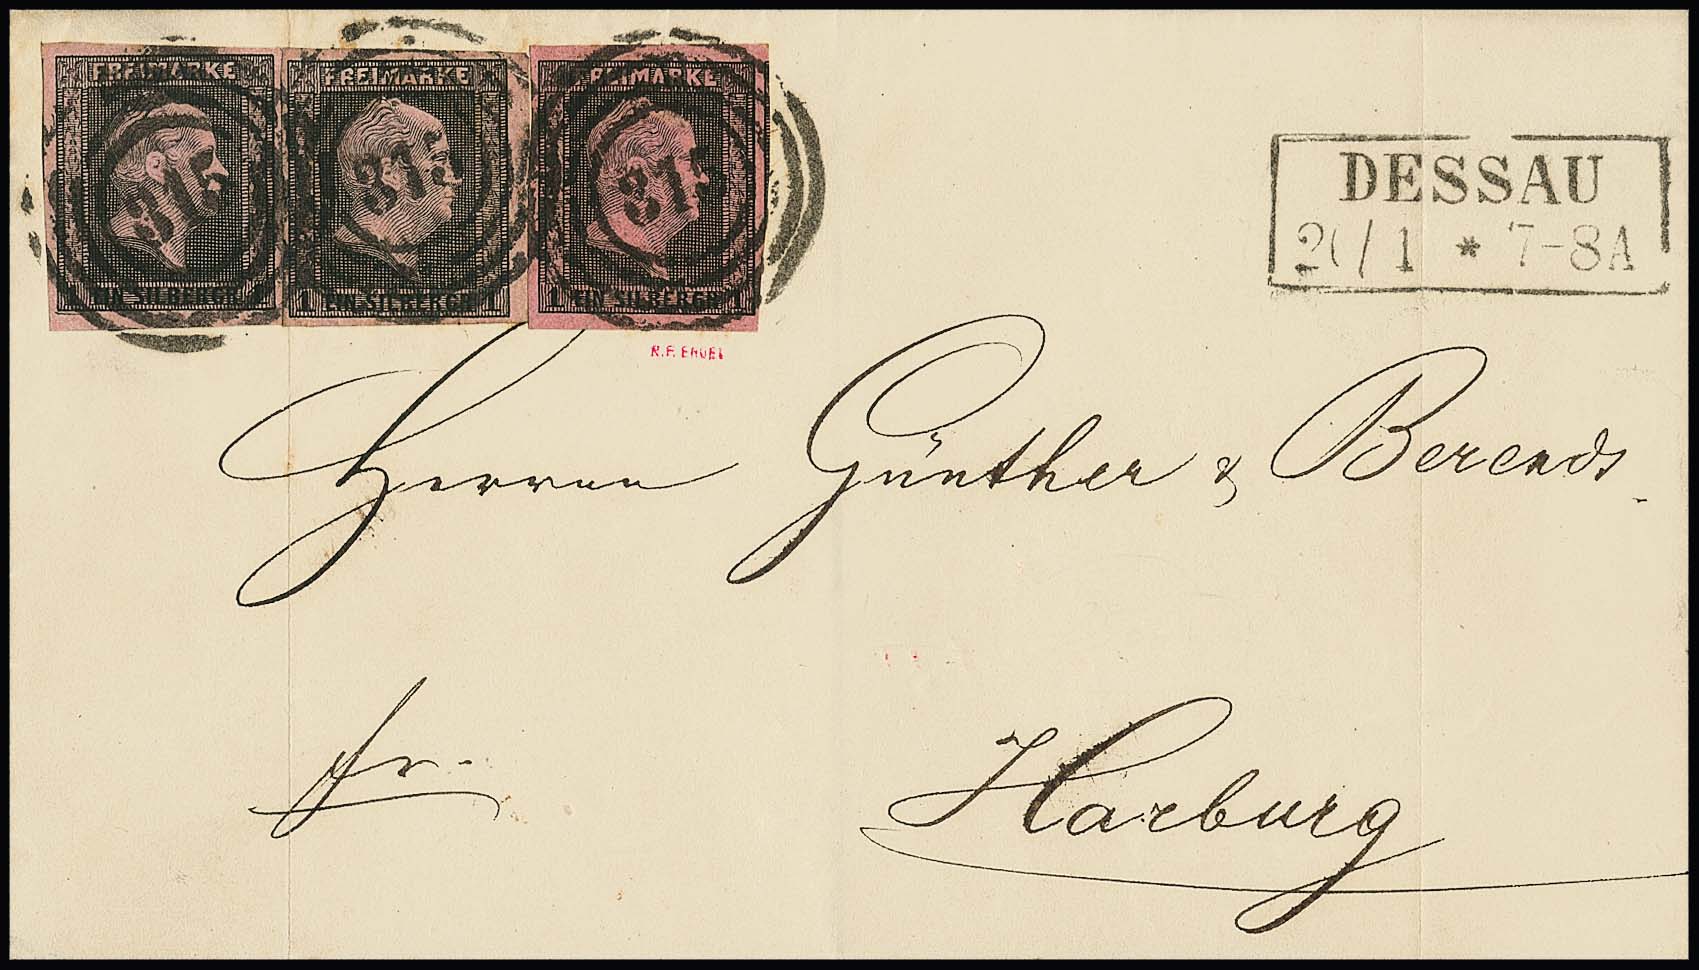 FREIMARKE FREIMARKE FREIMARKE
315 315 315
1 EIN SILBERGR. 1 1 EIN SILBERGR. 1 1 EIN SILBERGR. 1
DESSAU
20/1 * 7-8A
Herren Günther & Berends.
fr.
Harburg